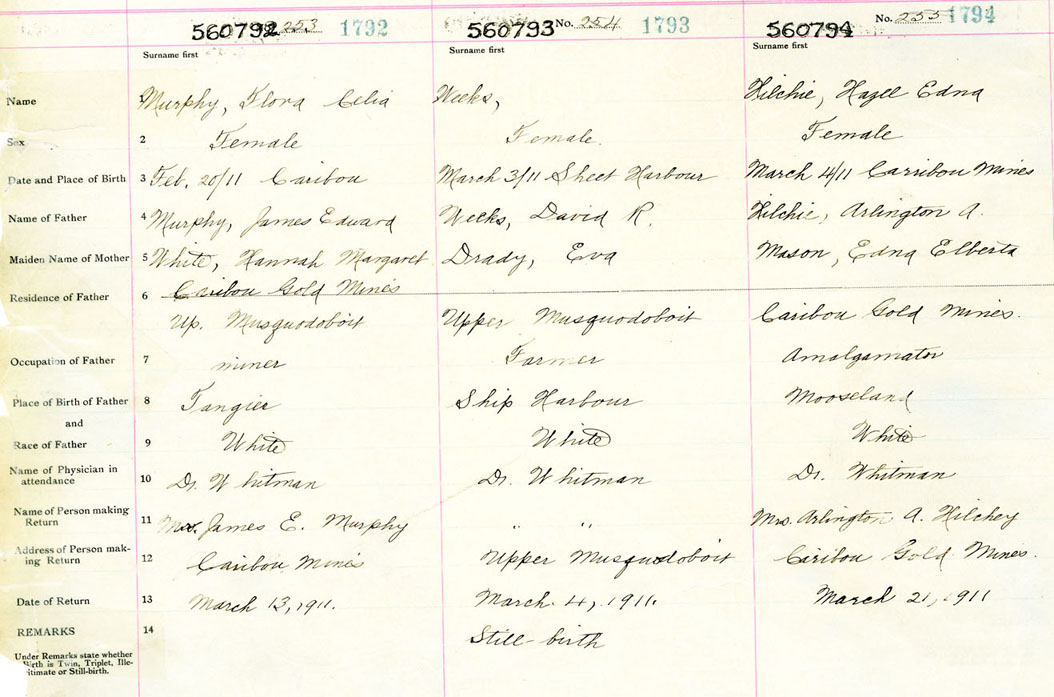 560792 253 1792 560793 No. 254 1793 560794 No. 255 1794
Surname first Surname first Surname first
Name 1 Murphy, Flora Celia Weeks, Hilchie, Hazel Edna
Sex 2 Female Female. Female
Date and Place of Birth 3 Feb. 20/11 Caribou March 3/11 Sheet Harbour March 4/11 Caribou Mines
Name of Father 4 Murphy, James Edward Weeks, David R. Hilchie, Arlington A.
Maiden Name of Mother 5 White, Hannah Margaret Drady, Eva Mason, Edna Elberta
Residence of Father 6 Caribou Gold Mines
Up. Musquodoboit Upper Musquodoboit Caribou Gold Mines.
Occupation of Father 7 miner Farmer Amalgamator
Place of Birth of Father 8 Tangier Ship Harbour Mooseland
and
Race of Father 9 White White White
Name of Physician in
attendance 10 Dr. Whitman Dr. Whitman Dr. Whitman
Name of Person making
Return 11 James E. Murphy " " Mrs. Arlington A. Hilchey
Address of Person mak-
ing Return 12 Caribou Mines Upper Musquodoboit Caribou Gold Mines.
Date of Return 13 March 13, 1911. March 4, 1911. March 21, 1911
REMARKS 14 Still-birth
Under Remarks state whether
Birth is Twin, Triplet, Ille-
gitimate or Still-birth.